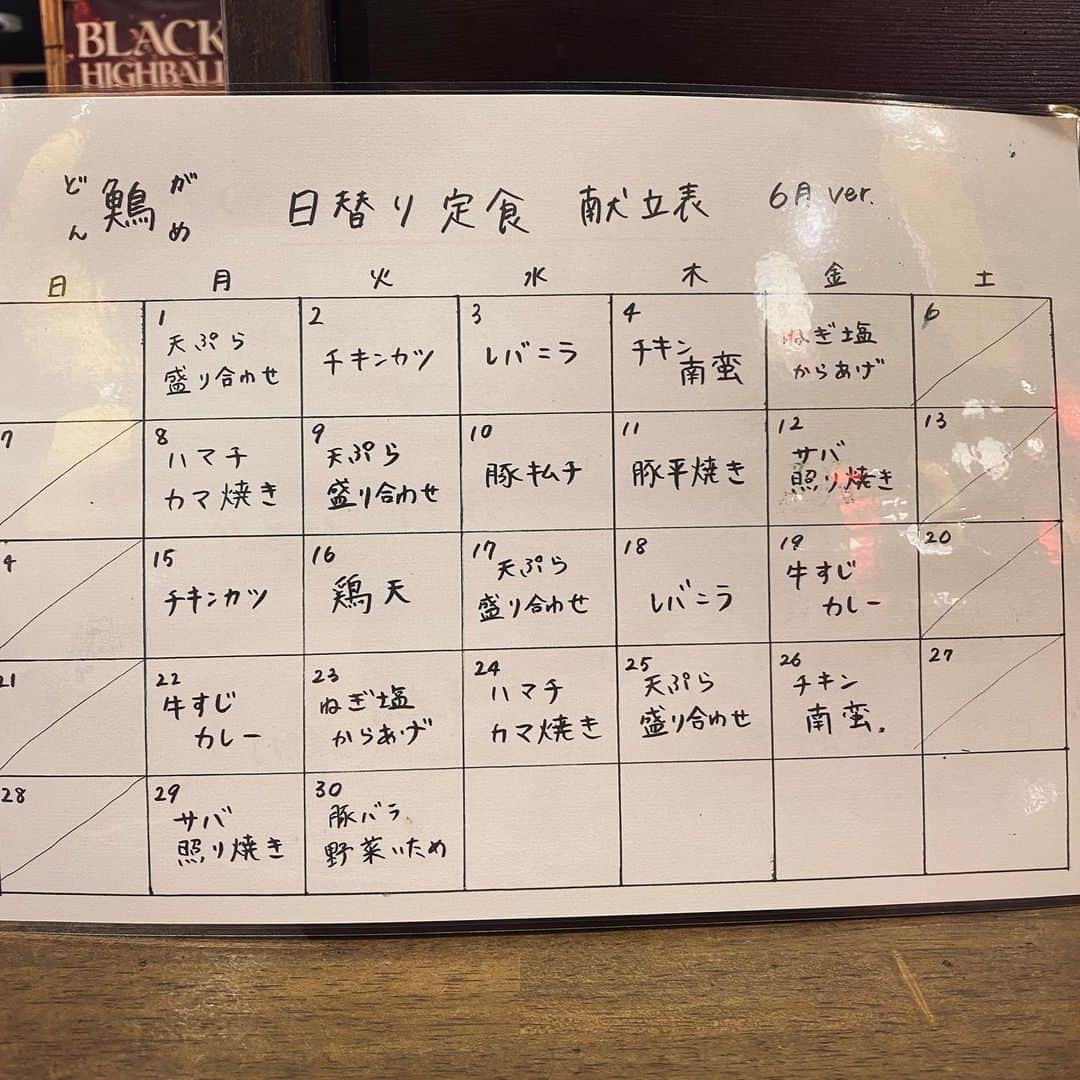 BLACK
HIGHBALL
どん 鷠 がめ 日替り定食 献立表 6月 ver.
日 月 火 水 木 金 土
1 2 3 4 6
天ぷら
盛り合わせ
チキンカツ
レバニラ
チキン
南蛮
ねぎ塩
からあげ
7 8 9 10 11 12 13
ハマチ
カマ焼き
天ぷら
盛り合わせ
豚キムチ
豚平焼き
サバ
照り焼き
4 15 16 17 18 19 20
チキンカツ
鶏天
天ぷら
盛り合わせ
レバニラ
牛すじ
カレー
21 22 23 24 25 26 27
牛すじ
カレー
ねぎ塩
からあげ
ハマチ
カマ焼き
天ぷら
盛り合わせ
チキン
南蛮。
28 29 30
サバ
照り焼き
豚バラ
野菜いため